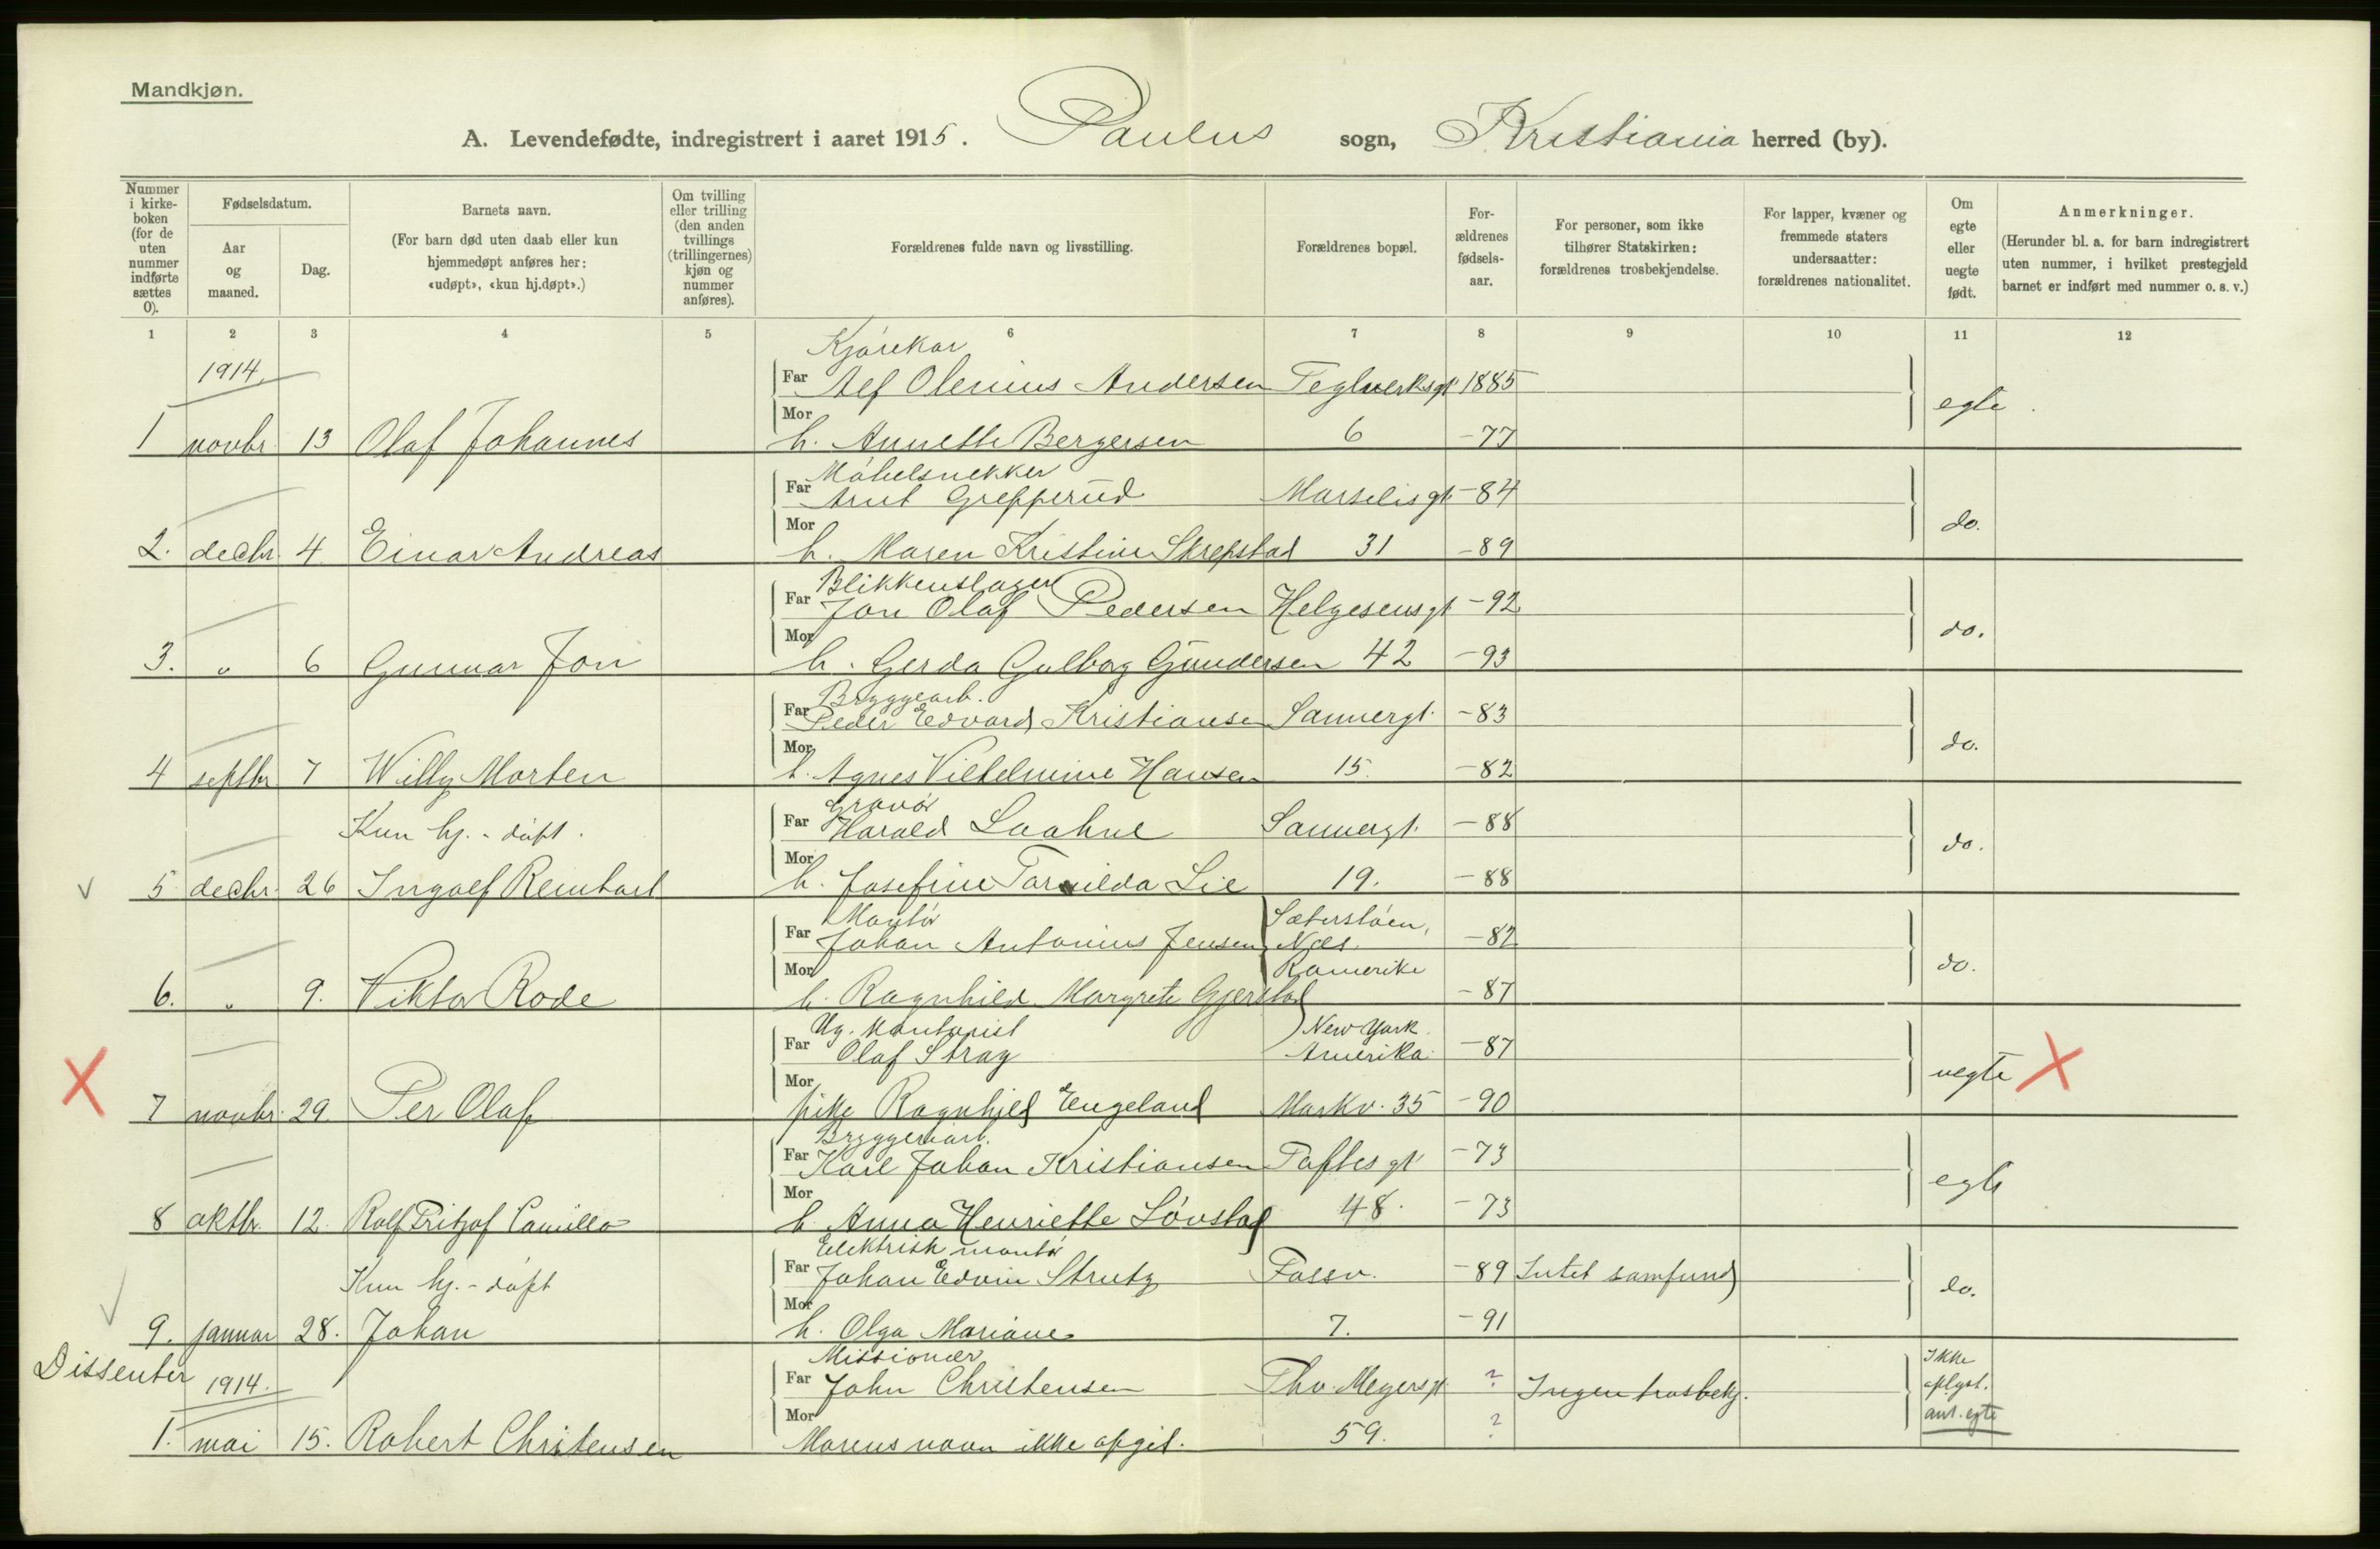 Mandkjøn.
A. Levendefødte, indregistrert i aaret 1915. Paulus sogn, Kristiania herred (by).
Nummer i kirkeboken (for de uten nummer indførte sættes 0).
Fødselsdatum.
Aar og maaned.
Dag.
Barnets navn.
(For barn død uten daab eller kun hjemmedøpt anføres her: «udøpt», «kun hj.døpt».)
Om tvilling eller trilling (den anden tvillings (trillingernes) kjøn og nummer anføres).
Forældrenes fulde navn og livsstilling.
Forældrenes bopæl.
For-ældrenes fødsels-aar.
For personer, som ikke tilhører Statskirken: forældrenes trosbekjendelse.
For lapper, kvæner og fremmede staters undersaatter: forældrenes nationalitet.
Om egte eller uegte født.
Anmerkninger.
(Herunder bl. a. for barn indregistrert uten nummer, i hvilket prestegjeld barnet er indført med nummer o. s. v.)
1 2 3 4 5 6 7 8 9 10 11 12
Kjørekar
1914. Far Alf Olenius Andersen Teglverksgt 1885
egte
1 novbr. 13 Olaf Johannes Mor h. Annette Bergersen 6 -77
Møbelsnekker
Far Arnt Grepperud Marselisgt -84
do.
2. decbr. 4 Einar Andreas Mor h. Maren Kristine Skrepstad 31 -89
Blikkenslager
Far Jon Olaf Pedersen Helgesensgt -92
do.
3. " 6 Gunnar Jon Mor h. Gerda Gulborg Gundersen 42 -93
Bryggearb.
Far Peder Edvard Kristiansen Sannergt. -83
do.
4 septbr 7 Willy Morten Mor h. Agnes Vilhelmine Hansen 15. -82
Gravør
Kun hj.-døpt. Far Harald Laahne Sannergt. -88
do.
v 5 decbr. 26 Ingolf Reinhart Mor h. Josefine Torvilda Lie 19. -88
Montør Sæterstøen,
Far Johan Antonius Jensen Næs. -82
do.
Mor Romerike
6. " 9. Viktor Rode h. Ragnhild Margrete Gjerstad -87
Ug. kontorist New York
Far Olaf Stray Amerika. -87
uegte X
X 7 novbr. 29. Per Olaf Mor pike Ragnhild Engeland Markv. 35 -90
Bryggeriarb.
Far Karl Johan Kristiansen Toftesgt -73
egte
8 oktbr. 12. Rolf Fritjof Camillo Mor h. Anna Henriette Løvstad 48. -73
Elektrisk montør
Kun hj.-døpt Far Johan Edvin Strutz Fossv. -89 Intet samfund
do.
9. januar 28. Johan Mor h. Olga Mariane 7. -91
Missionær
Dissenter 1914. Far John Christensen Thv. Meyersgt ? Ingen trosbekj.
Ikke
oplyst.
ant. egte
1. mai 15. Robert Christensen Mor Morens navn ikke opgit. 59. ?